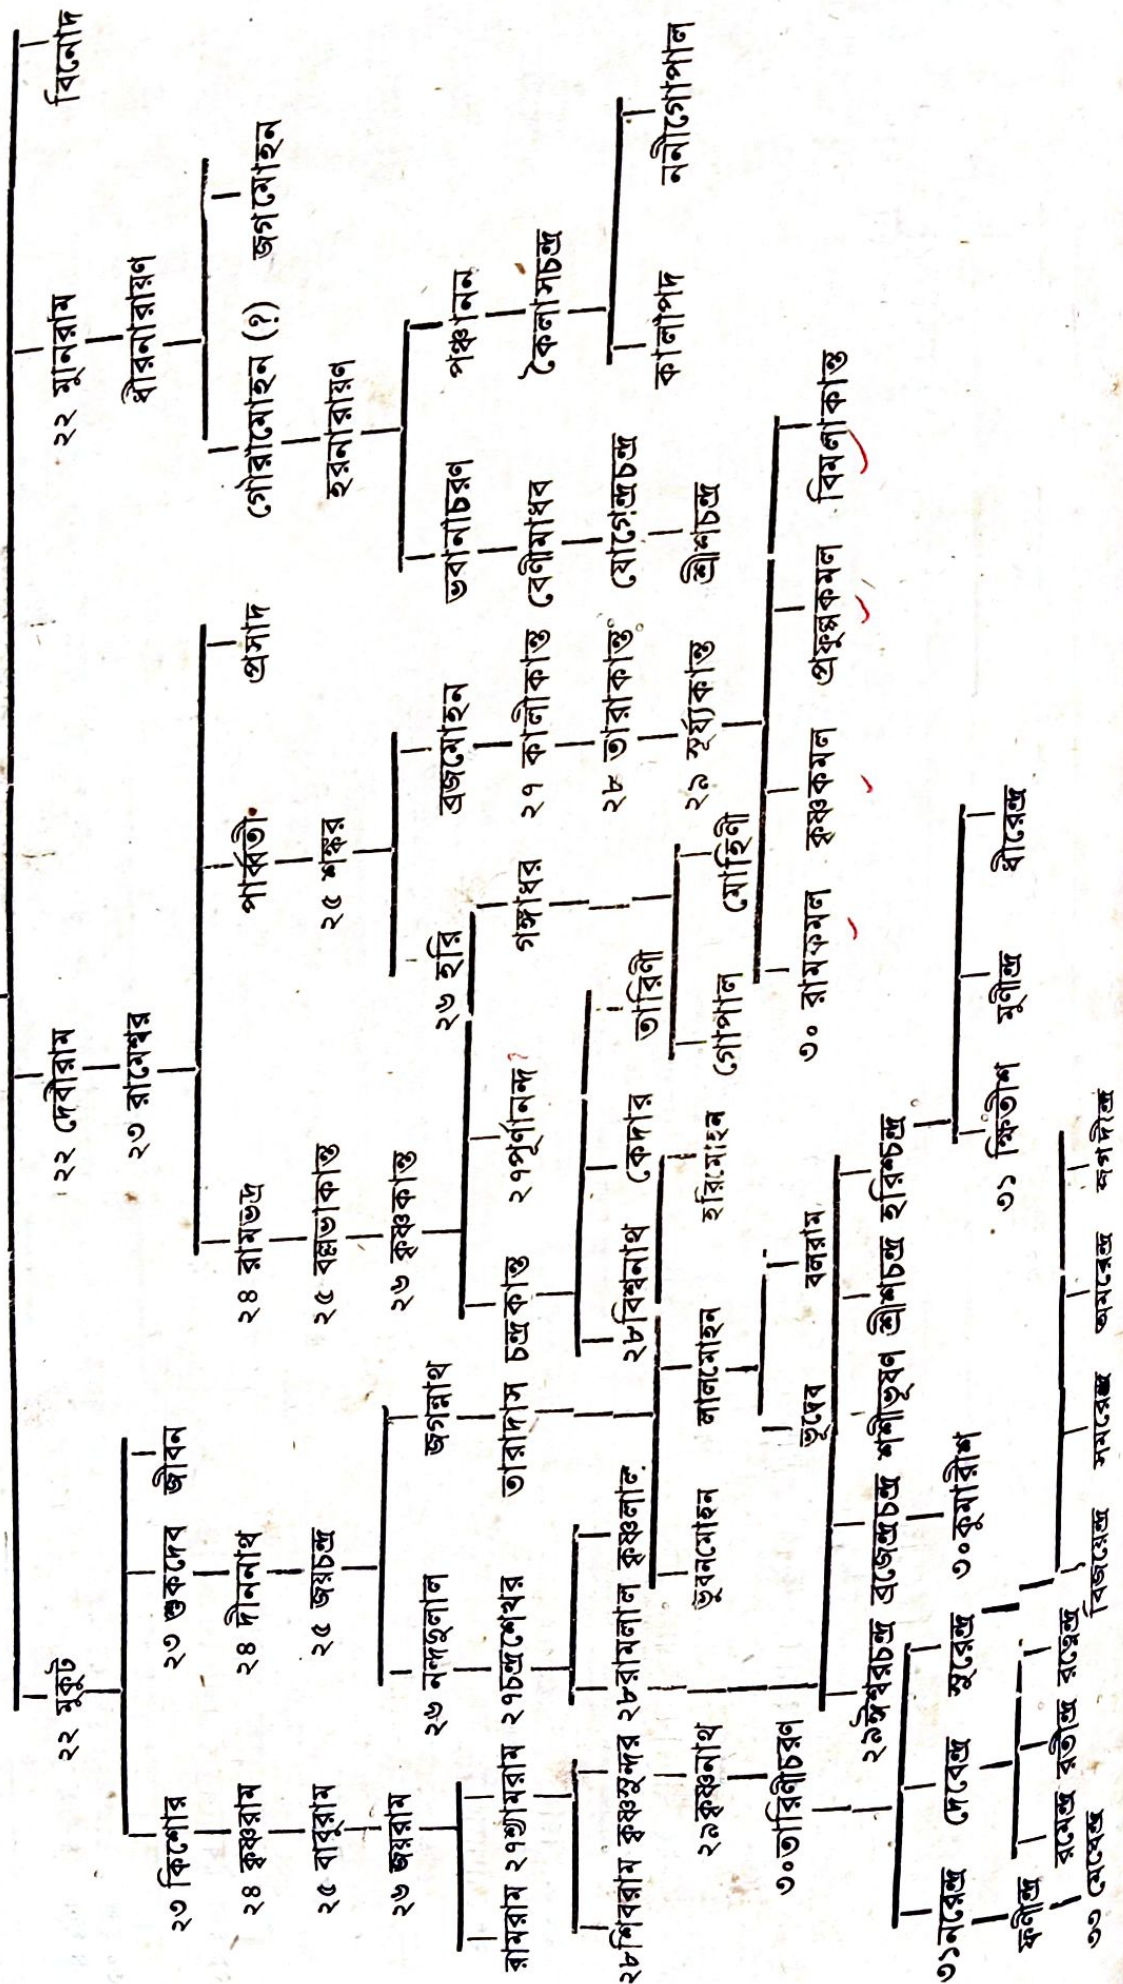 ২২ মুকুট ২২ দেবীরাম ২২ মুনরাম বিনোদ
২৩ রামেশ্বর ধীরনারায়ণ
২৩ কিশোর ২৩ শুকদেব জীবন
২৪ কৃষ্ণরাম ২৪ দীননাথ ২৪ রামভদ্র পার্ব্বতী প্রসাদ গোরামোহন (?) জগমোহন
২৫ বাবুরাম ২৫ জয়চন্দ্র ২৫ বল্লভাকান্ত ২৫ শঙ্কর হরনারায়ণ
২৬ জয়রাম ২৬ নন্দদুলাল জগন্নাথ ২৬ কৃষ্ণকান্ত ২৬ হরি ব্রজমোহন ভবানাচরণ পঞ্চানন
রামরাম ২৭শ্যামরাম ২৭চন্দ্রশেখর তারাদাস চন্দ্রকান্ত ২৭পূর্ণানন্দ গঙ্গাধর ২৭ কালীকান্ত বেণীমাধব কৈলাসচন্দ্র
২৮শিবরাম কৃষ্ণসুন্দর ২৮রামলাল কৃষ্ণলাল ২৮বিশ্বনাথ কেদার তারিণী ২৮ তারাকান্ত যোগেন্দ্রচন্দ্র কালাপদ ননীগোপাল
২৯কৃষ্ণনাথ ভুবনমোহন লালমোহন হরিমোহন গোপাল মোহিণী ২৯ সূর্য্যকান্ত শ্রীশচন্দ্র
৩০তারিণীচরণ ভূদেব বলরাম ৩০ রামকমল কৃষ্ণকমল প্রফুল্লকমল বিমলাকান্ত
২৯ঈশ্বরচন্দ্র ব্রজেন্দ্রচন্দ্র শশীভূষণ শ্রীশচন্দ্র হরিশ্চন্দ্র
৩১নরেন্দ্র দেবেন্দ্র সুরেন্দ্র ৩০কুমারীশ ৩১ ক্ষিতীশ মুণীন্দ্র ধীরেন্দ্র
ফণীন্দ্র রমেন্দ্র রতীন্দ্র রত্নেন্দ্র বিজয়েন্দ্র সমরেন্দ্র অমরেন্দ্র জগদীন্দ্র
৩৩